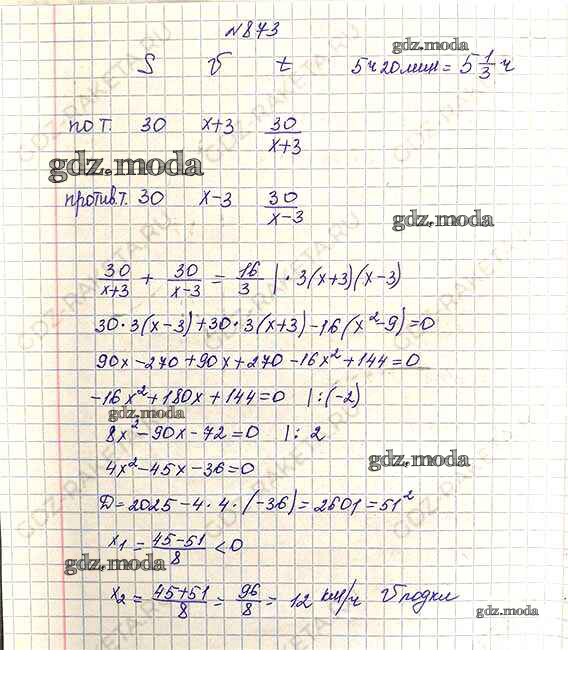 №873
S V t 5ч20мин = 5 1/3 ч
gdz.moda
по т. 30 x+3 30/(x+3)
gdz.moda
против т. 30 x-3 30/(x-3)
gdz.moda
30/(x+3) + 30/(x-3) = 16/3 | · 3(x+3)(x-3)
30·3(x-3)+30·3(x+3)-16(x²-9)=0
90x-270+90x+270-16x²+144=0
-16x²+180x+144=0 |:(-2)
gdz.moda
8x²-90x-72=0 |: 2
4x²-45x-36=0
gdz.moda
D=2025-4·4·(-36)=2601=51²
x₁ = (45-51)/8 < 0
gdz.moda
x₂ = (45+51)/8 = 96/8 = 12 км/ч V лодки
gdz.moda
GDZ-RAKETA.RU